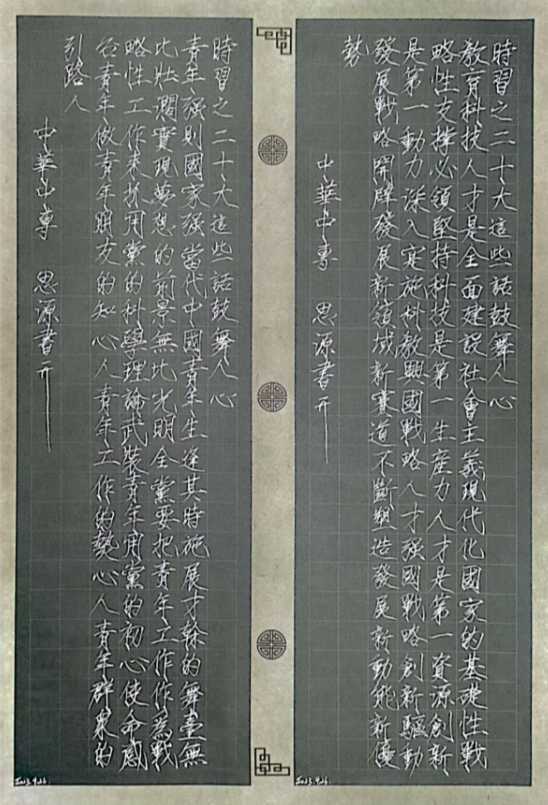 時習之二十大這些話鼓舞人心
教育科技人才是全面建設社會主義現代化國家的基礎性戰
略性支撐必須堅持科技是第一生産力人才是第一資源創新
是第一動力深入實施科教興國戰略人才强國戰略創新驅動
發展戰略開辟發展新領域新賽道不斷塑造發展新動能新優
勢
中華中專 思源書于
2023.4.26.
時習之二十大這些話鼓舞人心
青年强則國家强當代中國青年生逢其時施展才榦的舞臺無
比壯闊實現夢想的前景無比光明全黨要把青年工作作爲戰
略性工作來抓用黨的科學理論武裝青年用黨的初心使命感
召青年做青年朋友的知心人青年工作的熱心人青年群衆的
引路人
中華中專 思源書于
2023.4.26.